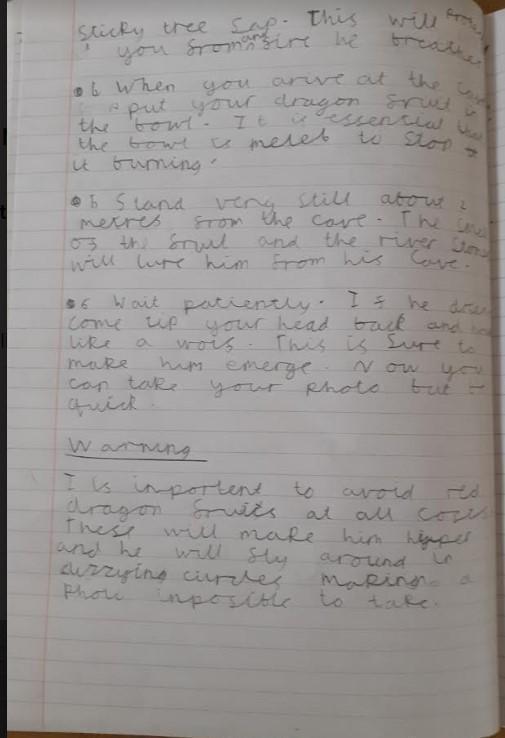 sticky tree sap. This will
you from any fire he breathes
6 When you arive at the
put your dragon fruit in
the bowl. It is essential that
the bowl is metel to stop
it burning.
5 Stand very still about 2
metres from the cave. The
of the fruit and the river stones
will lure him from his cave.
6 Wait patiently. If he
come tip your head back and
like a
This is sure to
make him emerge. Now you
can take your photo but
quick.
Warning
I is inportent to avoid red
dragon fruits at all
These will make him hipper
and he will fly around in
dizzying circles making a
inposible to take.